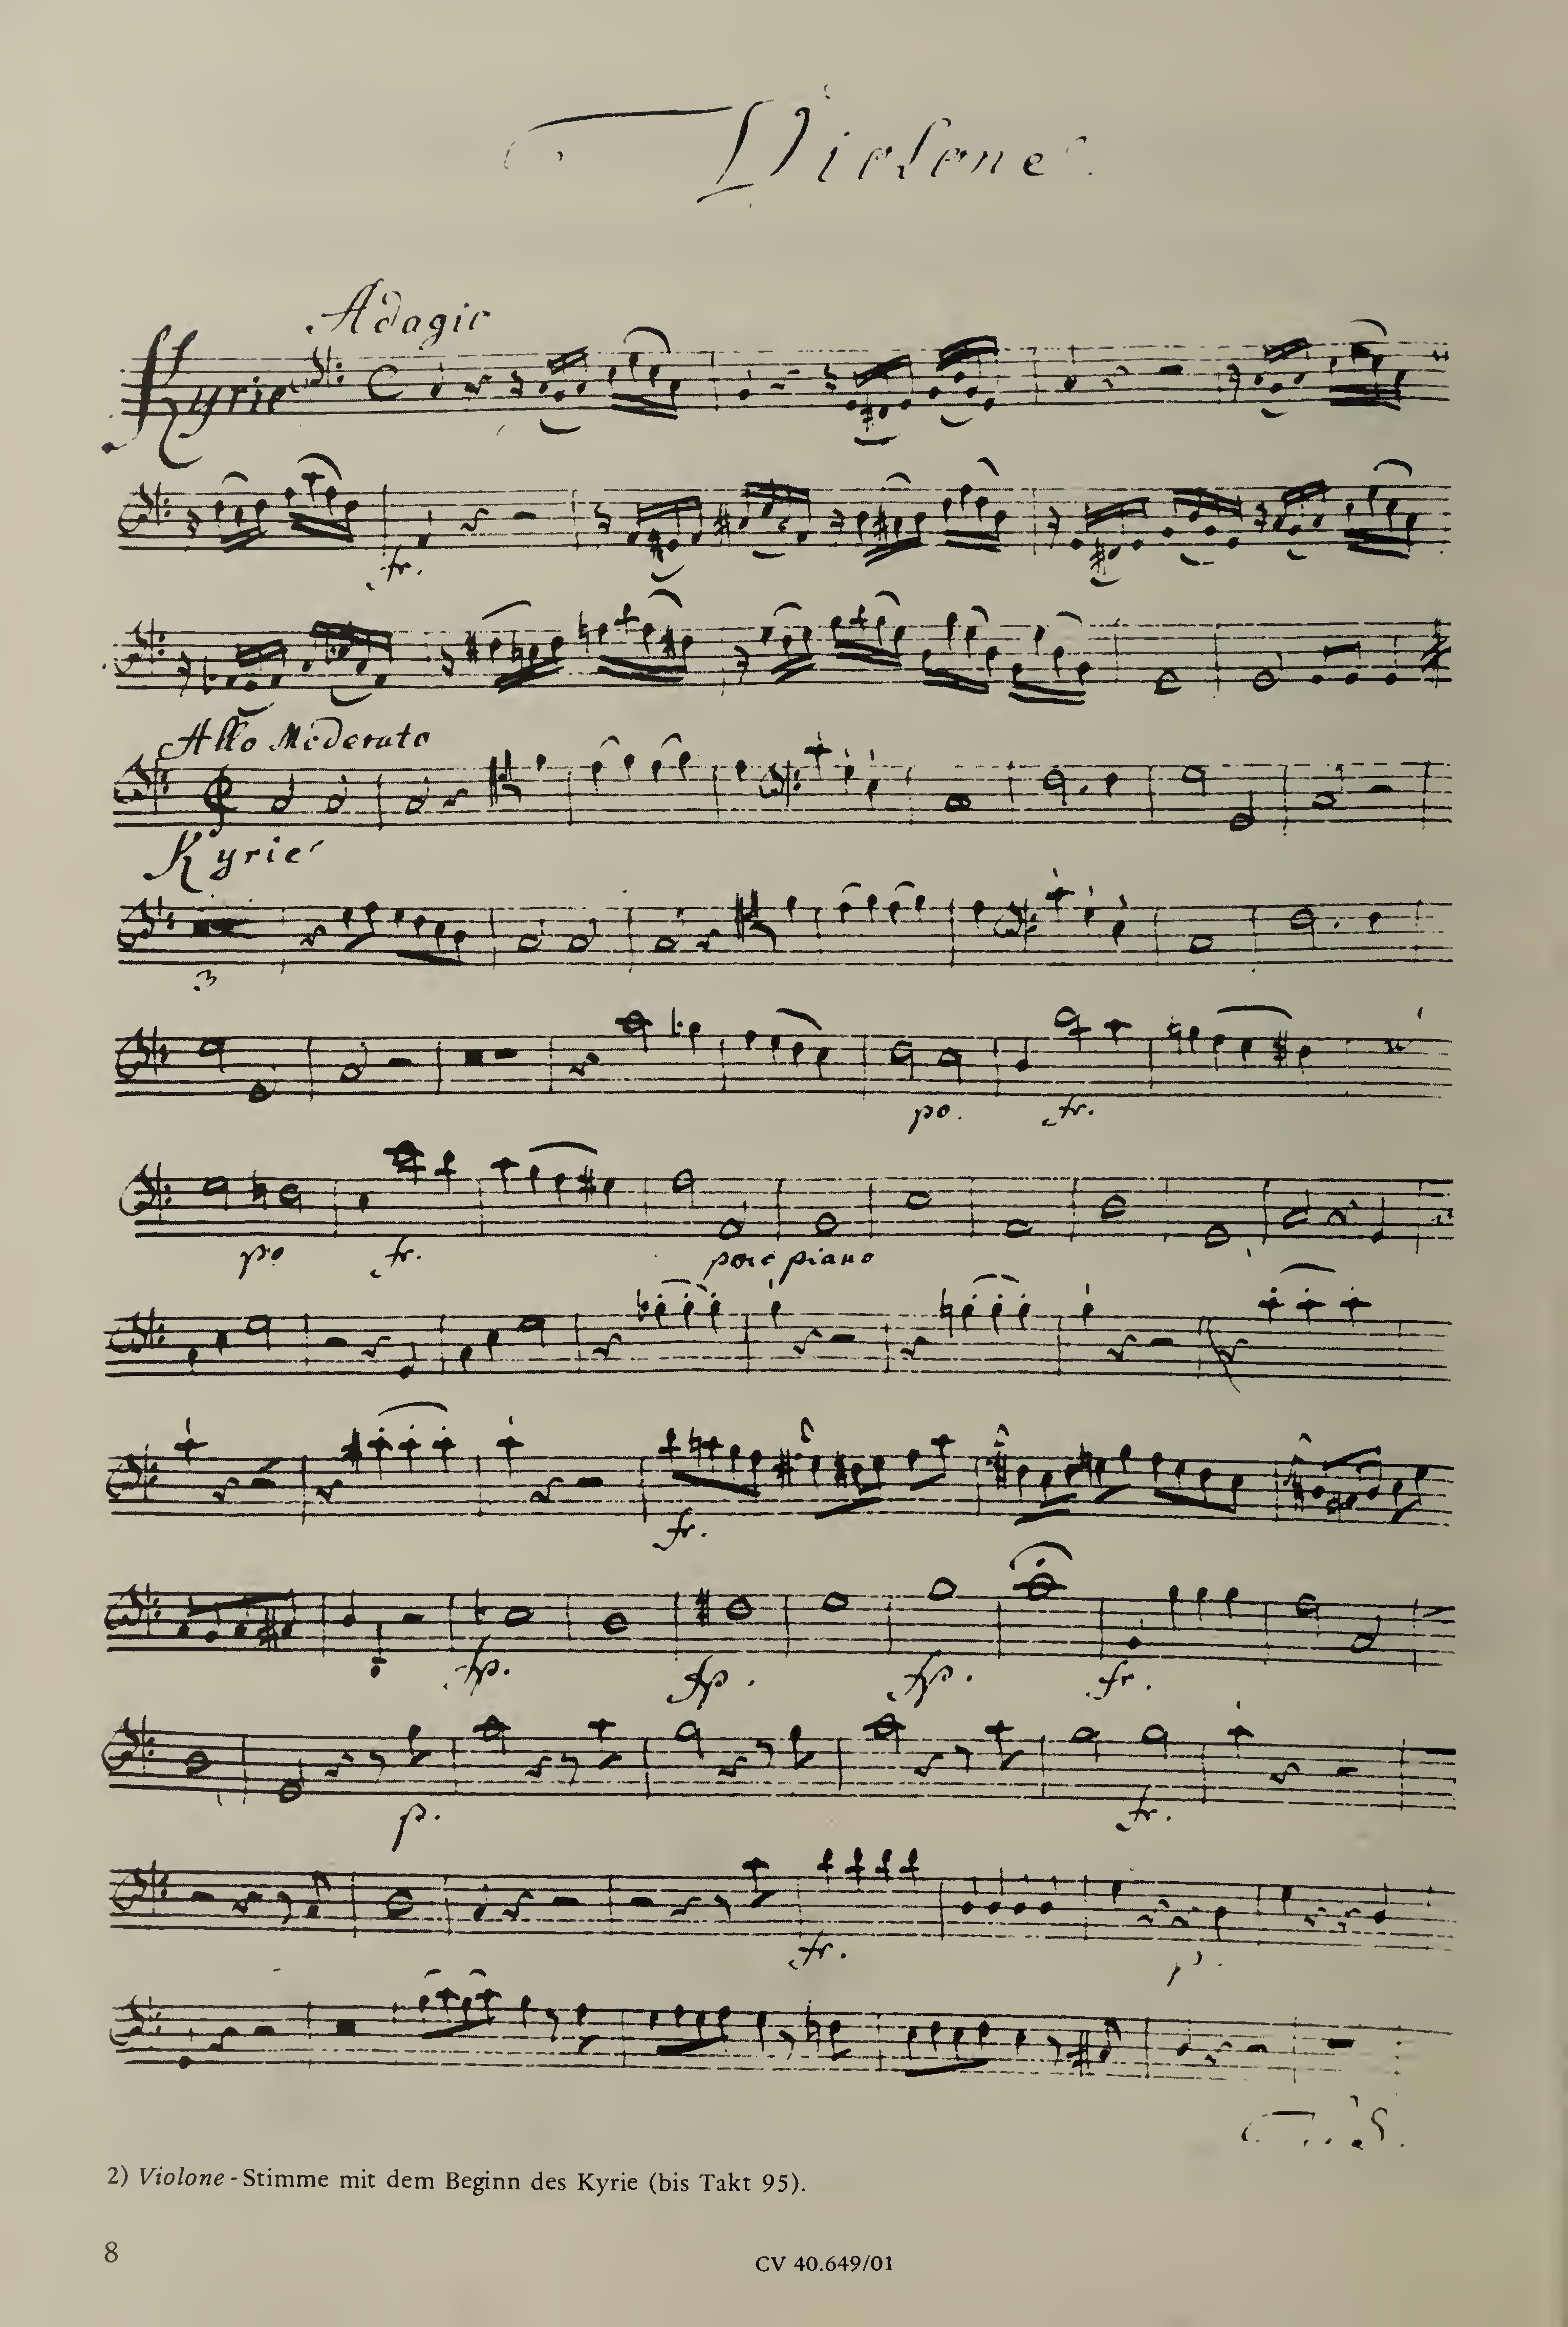 Violone
Adagio
Kyrie
fr.
Allo Moderato
Kyrie
3
po. fr.
po fr. poco piano
fr.
fp. fp. fp. fr.
p. fr.
fr. p.
V. S.
2) Violone - Stimme mit dem Beginn des Kyrie (bis Takt 95).
8
CV 40.649/01